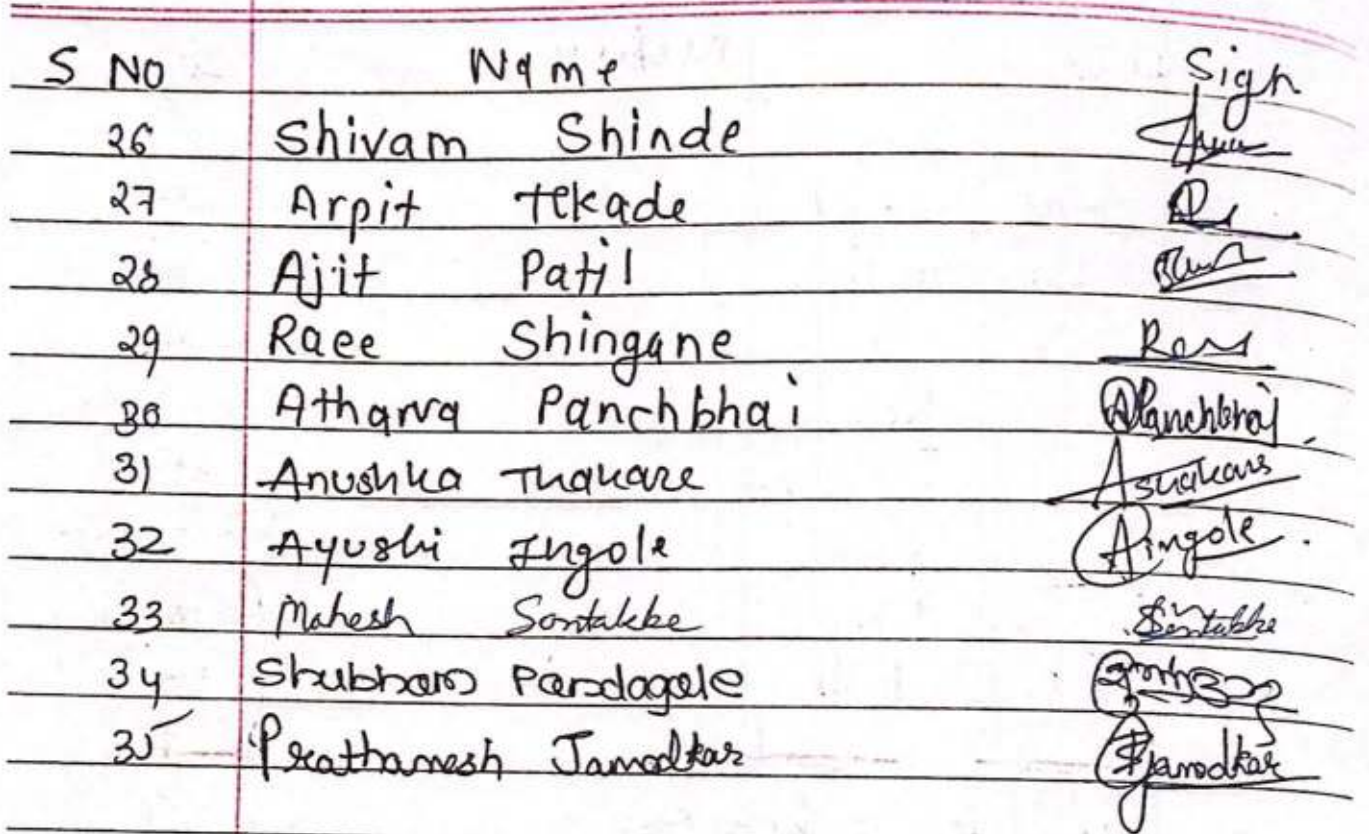 S No Name Sign
26 Shivam Shinde
27 Arpit Tekade
28 Ajit Patil
29 Raee Shingane
30 Atharva Panchbhai APanchbhai
31 Anushka Thakare AThakare
32 Ayushi Ingole Aingole
33 Mahesh Sontakke Sontakke
34 Shubham Pardagale
35 Prathamesh Jamodkar PJamodkar